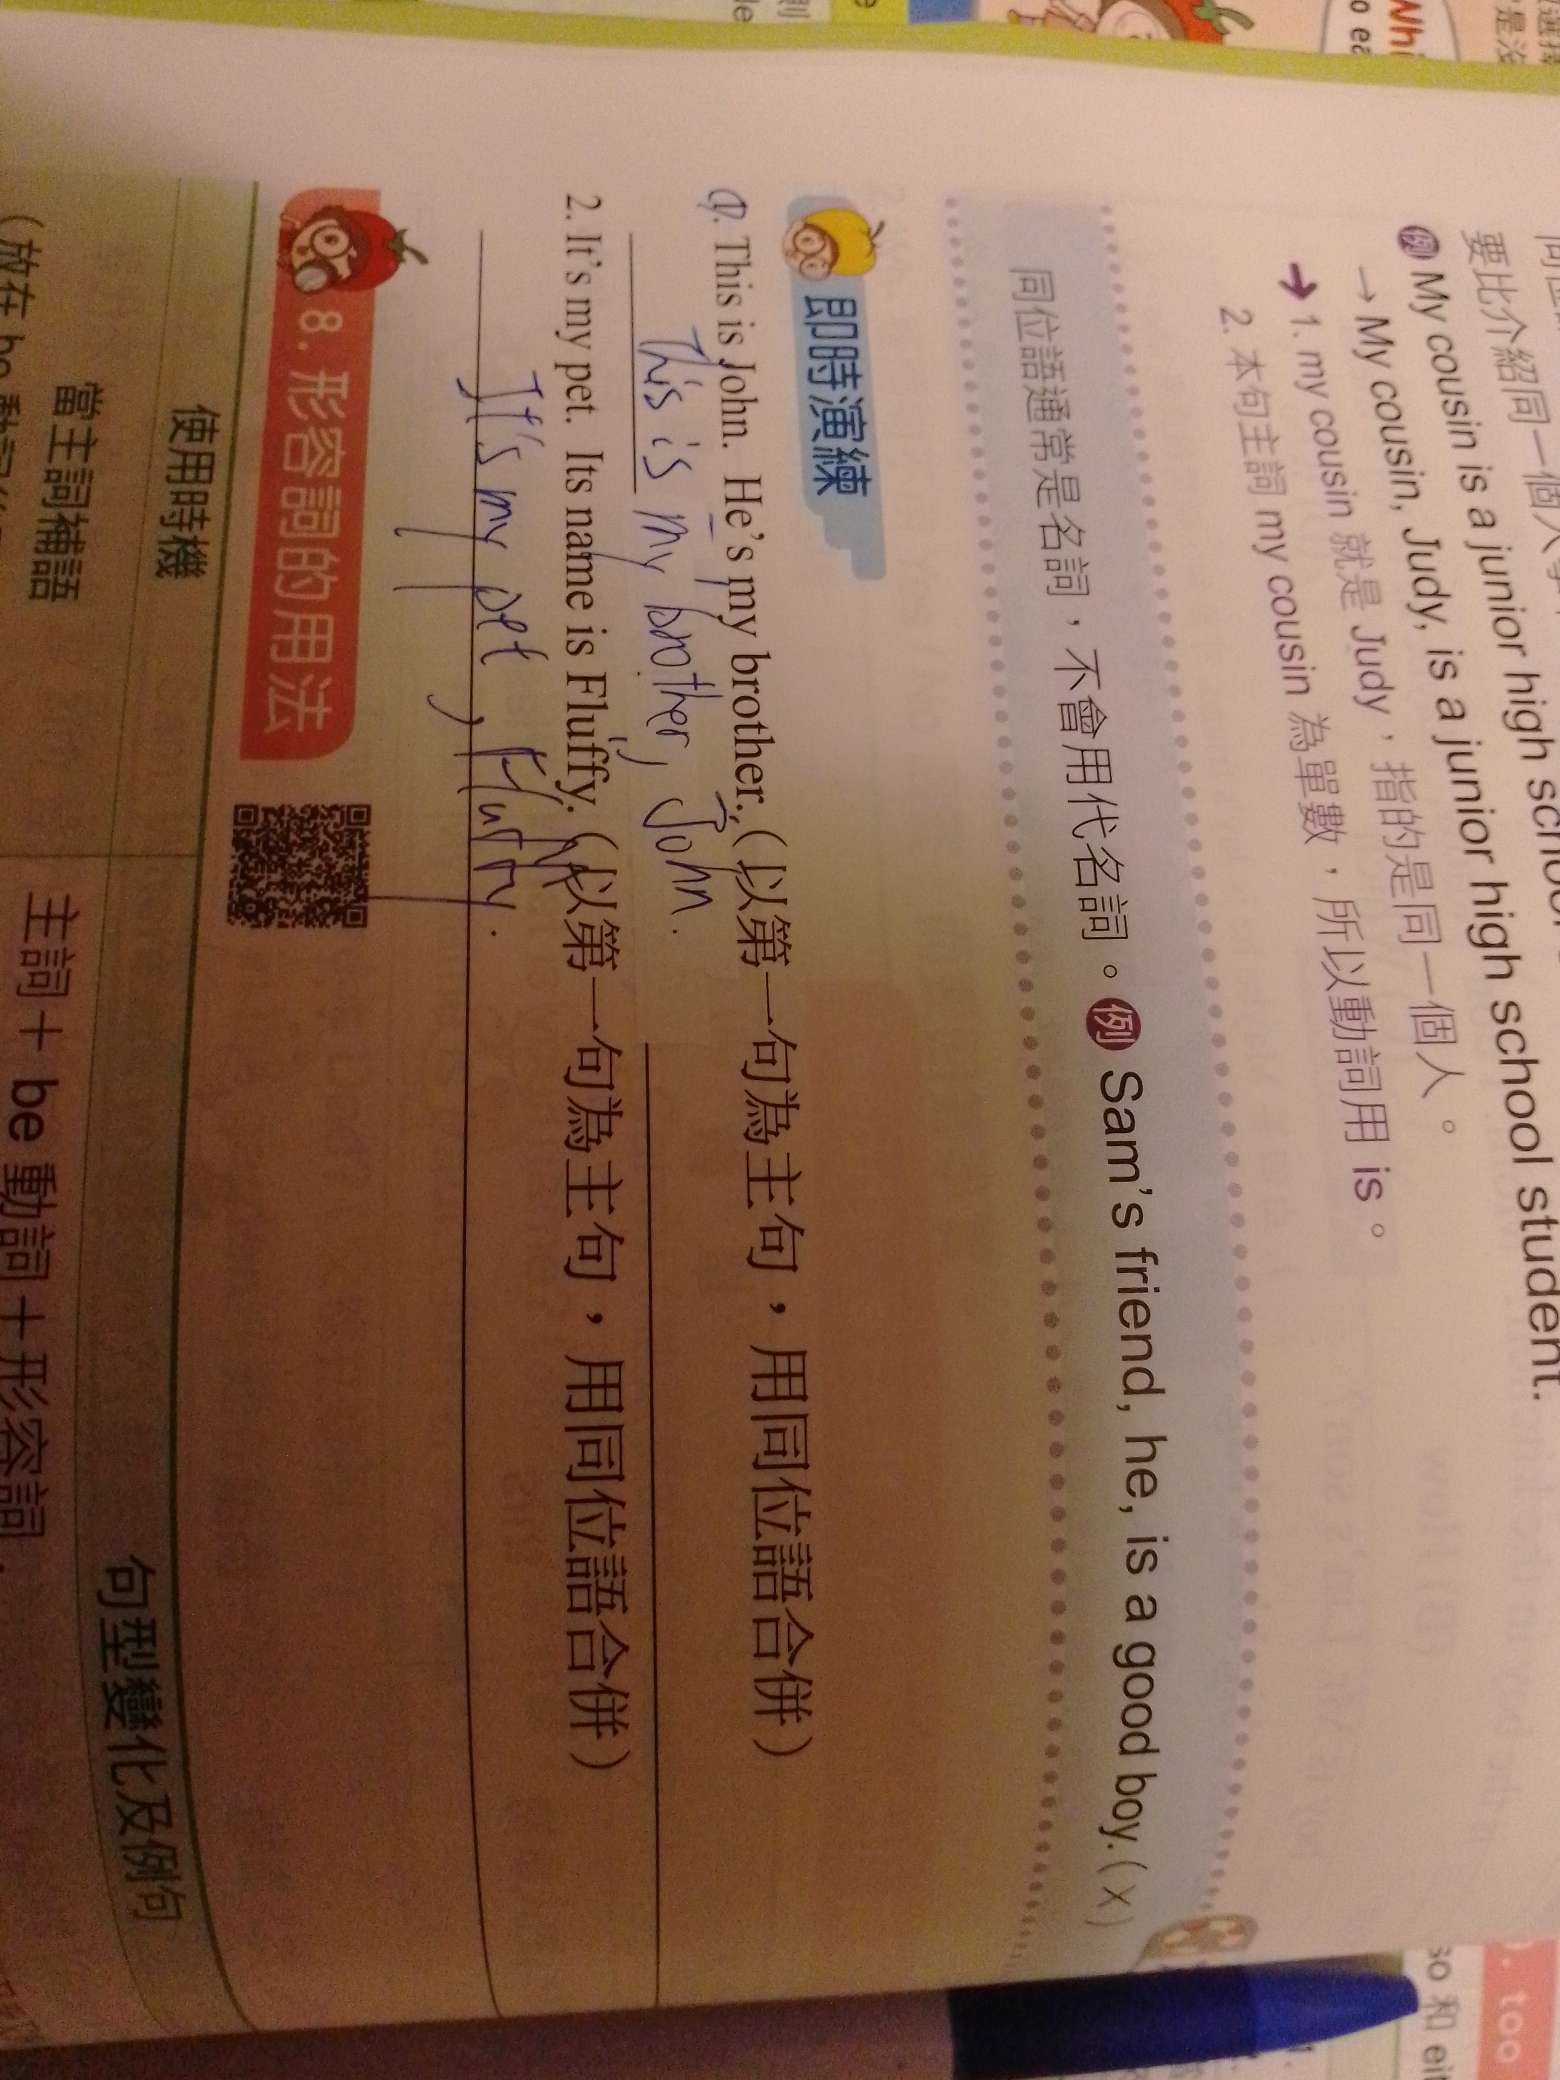 要比介紹同一個人
例 My cousin is a junior high school
→ My cousin, Judy, is a junior high school student.
➔ 1. my cousin 就是 Judy,指的是同一個人。
2. 本句主詞 my cousin 為單數,所以動詞用 is。
同位語通常是名詞,不會用代名詞。例 Sam's friend, he, is a good boy.(×)
即時演練
1. This is John. He's my brother.(以第一句為主句,用同位語合併)
This is my brother, John.
2. It's my pet. Its name is Fluffy.(以第一句為主句,用同位語合併)
It's my pet, Fluffy.
8. 形容詞的用法
使用時機 句型變化及例句
當主詞補語 主詞+be 動詞+形容詞.
(放在 be
too
so 和